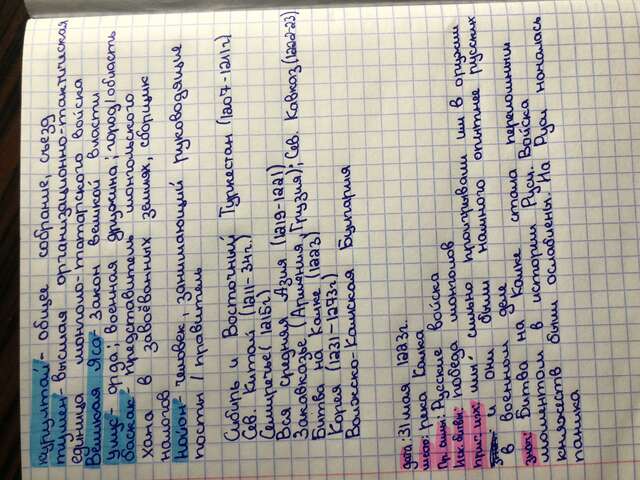 курултай - общее собрание, съезд
тумен - высшая организационно-тактическая
единица монголо-татарского войска
Великая Яса - Закон великой власти
Улус - орда; военная дружина; город/область
баскак - представитель монгольского
хана в завоёванных землях, сборщик
налогов
нойон - человек, занимающий руководящие
посты / правитель
Сибирь и Восточный Туркестан (1207-1211г)
Сев. Китай (1211-34гг.)
Семиречье (1215г)
Вся средняя Азия (1219-1221)
Закавказье (Армения, Грузия); Сев. Кавказ (1222-23)
Битва на Калке (1223)
Корея (1231-1273г)
Волжско-Камская Булгария
дата: 31 мая 1223г.
место: река Калка
Пр. сила: Русские войска
Исх битвы: победа монголов
прич. исх: мы сильно проигрывали им в оружии
и они были намного опытнее русских
в военном деле
знач: Битва на Калке стала переломным
моментом в истории Руси. Войска
княжеств были ослаблены. На Руси началась
паника